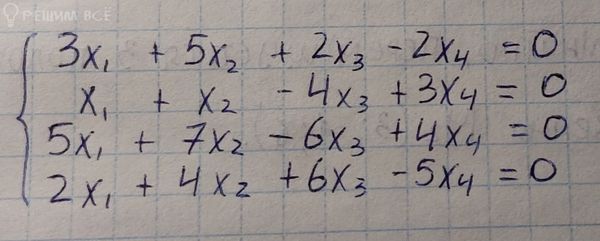 РЕШИМ ВСЁ
3x₁ + 5x₂ + 2x₃ - 2x₄ = 0
x₁ + x₂ - 4x₃ + 3x₄ = 0
5x₁ + 7x₂ - 6x₃ + 4x₄ = 0
2x₁ + 4x₂ + 6x₃ - 5x₄ = 0